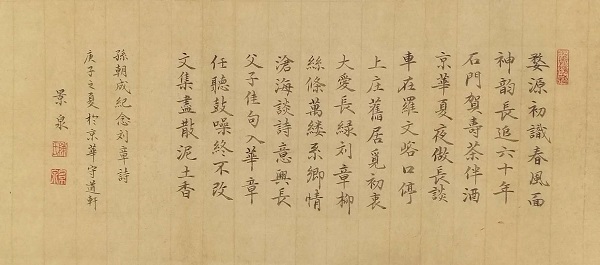 婺源初識春風面
神韵長追六十年
石門賀壽茶伴酒
京華夏夜做長談
車在羅文峪口停
上庄舊居覓初衷
大愛長緑刘章柳
絲條萬縷系鄉情
滄海談詩意興長
父子佳句入華章
任聽鼓噪終不改
文集盡散泥土香
孫朝成紀念刘章詩
庚子之夏於京華守道軒
景泉